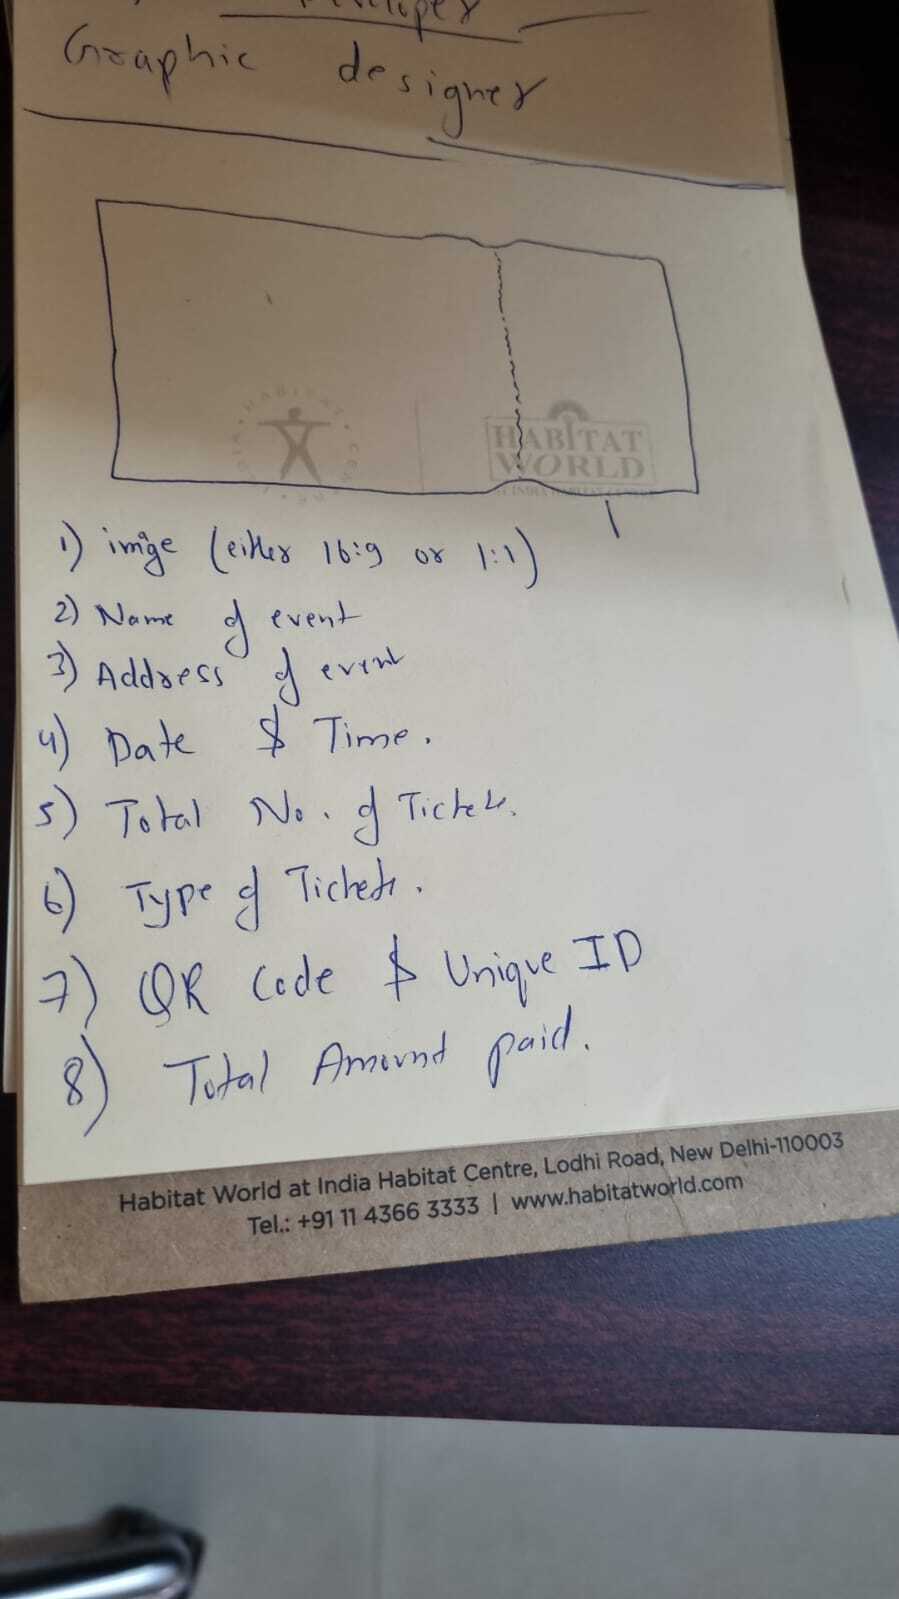 Developer
Graphic designer
HABITAT
WORLD
1) image (either 16:9 or 1:1)
2) Name of event
3) Address of event
4) Date & Time.
5) Total No. of Tickets.
6) Type of Tickets.
7) QR Code & Unique ID
8) Total Amount paid.
Habitat World at India Habitat Centre, Lodhi Road, New Delhi-110003
Tel.: +91 11 4366 3333 | www.habitatworld.com